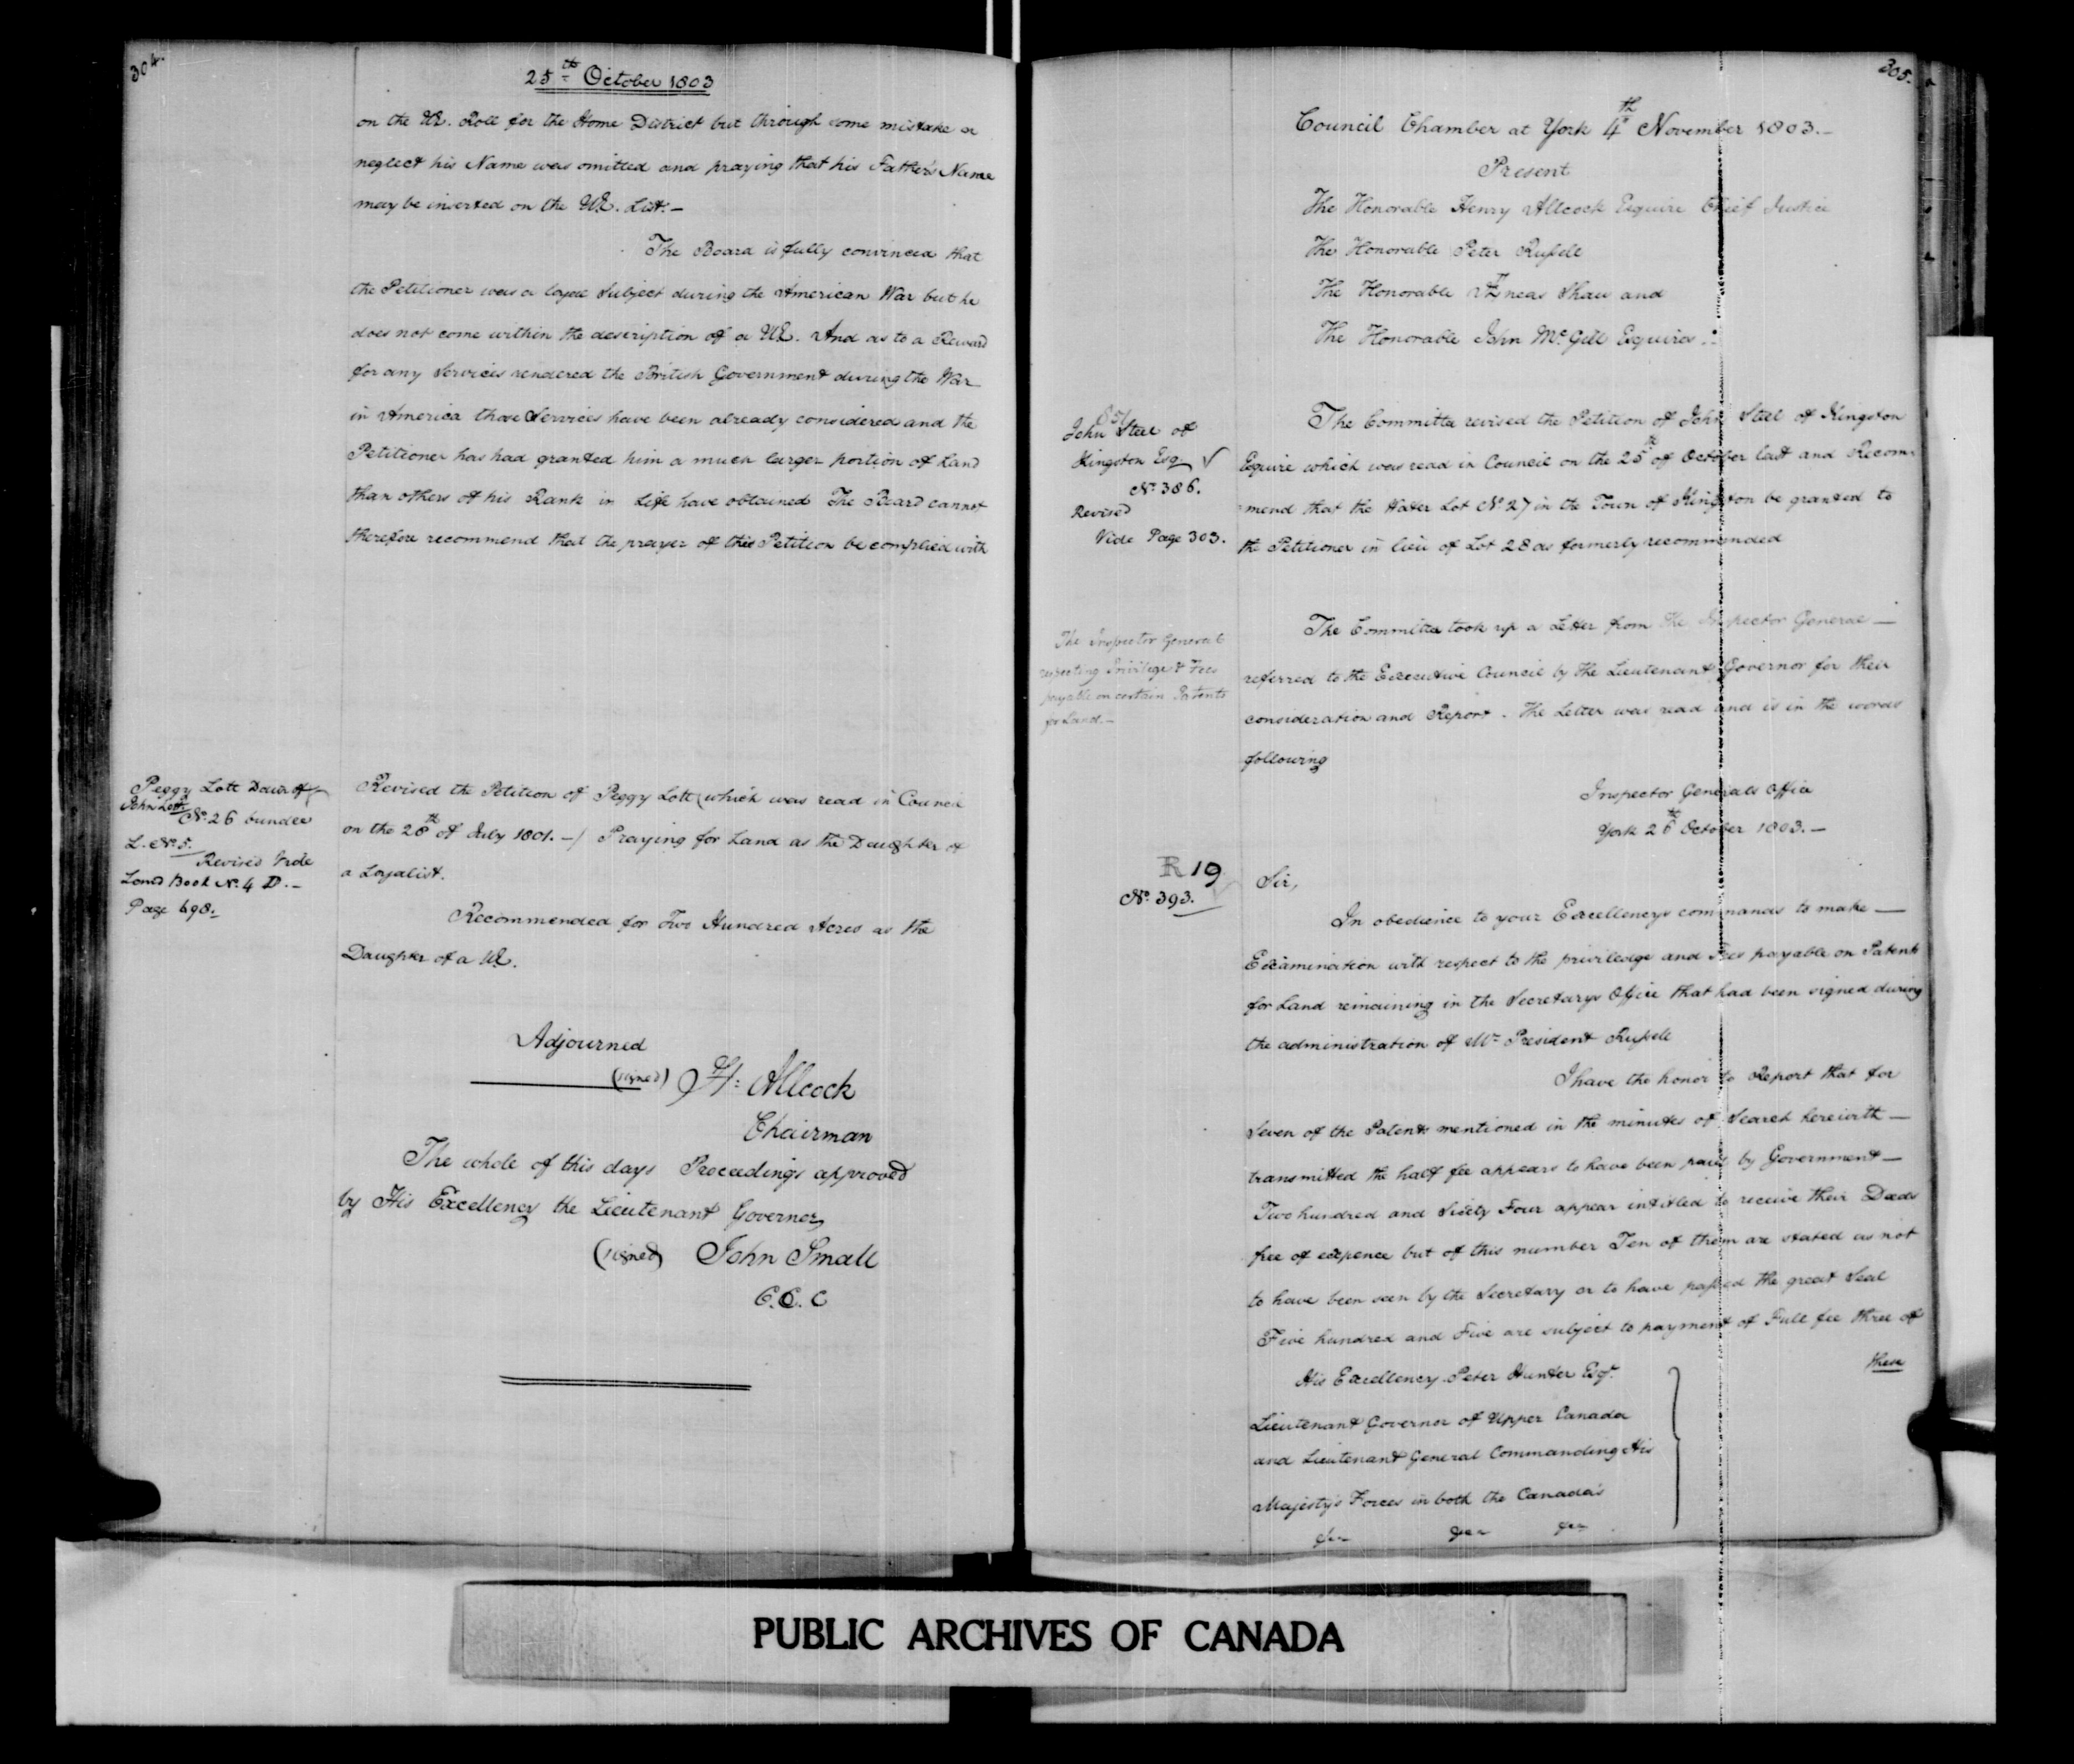 304.
25th October 1803
on the UE. Roll for the Home District but through some mistake or
neglect his Name was omitted and praying that his Father's Name
may be inserted on the UE. List.—
The Board is fully convinced that
the Petitioner was a loyal Subject during the American War but he
does not come within the description of a UE. And as to a Reward
for any Services rendered the British Government during the War
in America those Services have been already considered and the
Petitioner has had granted him a much larger portion of Land
than others of his Rank in Life have obtained The Board cannot
therefore recommend that the prayer of this Petition be complied with
Peggy Lott Daur. of
John Lott
No. 26 bundle
L. No. 5.
Revised Vide
Land Book No. 4 D.—
Page 698.
Revised the Petition of Peggy Lott (which was read in Council
on the 28th of July 1801.—) Praying for Land as the Daughter of
a Loyalist.
Recommended for Two Hundred Acres as the
Daughter of a UE.
Adjourned
(signed) H: Allcock
Chairman
The whole of this days Proceedings approved
by His Excellency the Lieutenant Governor
(signed) John Small
C. E. C
305.
Council Chamber at York 4th November 1803.—
Present
The Honorable Henry Allcock Esquire Chief Justice
The Honorable Peter Russell
The Honorable Æneas Shaw and
The Honorable John McGill Esquires.
John Steel of
Kingston Esqr. √
No. 386.
Revised
Vide Page 303.
The Committee revised the Petition of John Steel of Kingston
Esquire which was read in Council on the 25th of October last and Recom-
mend that the Water Lot No. 27 in the Town of Kingston be granted to
the Petitioner in lieu of Lot 28 as formerly recommended
The Inspector General
respecting Privilege & Fees
payable on certain Patents
for Land.—
The Committee took up a Letter from the Inspector General—
referred to the Executive Council by the Lieutenant Governor for their
consideration and Report. The Letter was read and is in the words
following
Inspector Generals Office
York 26th October 1803.—
R 19
No. 393.
Sir,
In obedience to your Excellencys commands to make—
Examination with respect to the priviledge and Fees payable on Patents
for Land remaining in the Secretarys Office that had been signed during
the administration of Mr. President Russell
I have the honor to Report that for
Seven of the Patents mentioned in the minutes of Search herewith—
transmitted the half fee appears to have been paid by Government—
Two hundred and Sixty Four appear intitled to receive their Deeds
free of expence but of this number Ten of them are stated as not
to have been seen by the Secretary or to have passed the great Seal
Five hundred and Five are subject to payment of Full fee three of
these
His Excellency Peter Hunter Esqr.
Lieutenant Governor of Upper Canada
and Lieutenant General Commanding His
Majesty's Forces in both the Canada's
&c &c &c
PUBLIC ARCHIVES OF CANADA